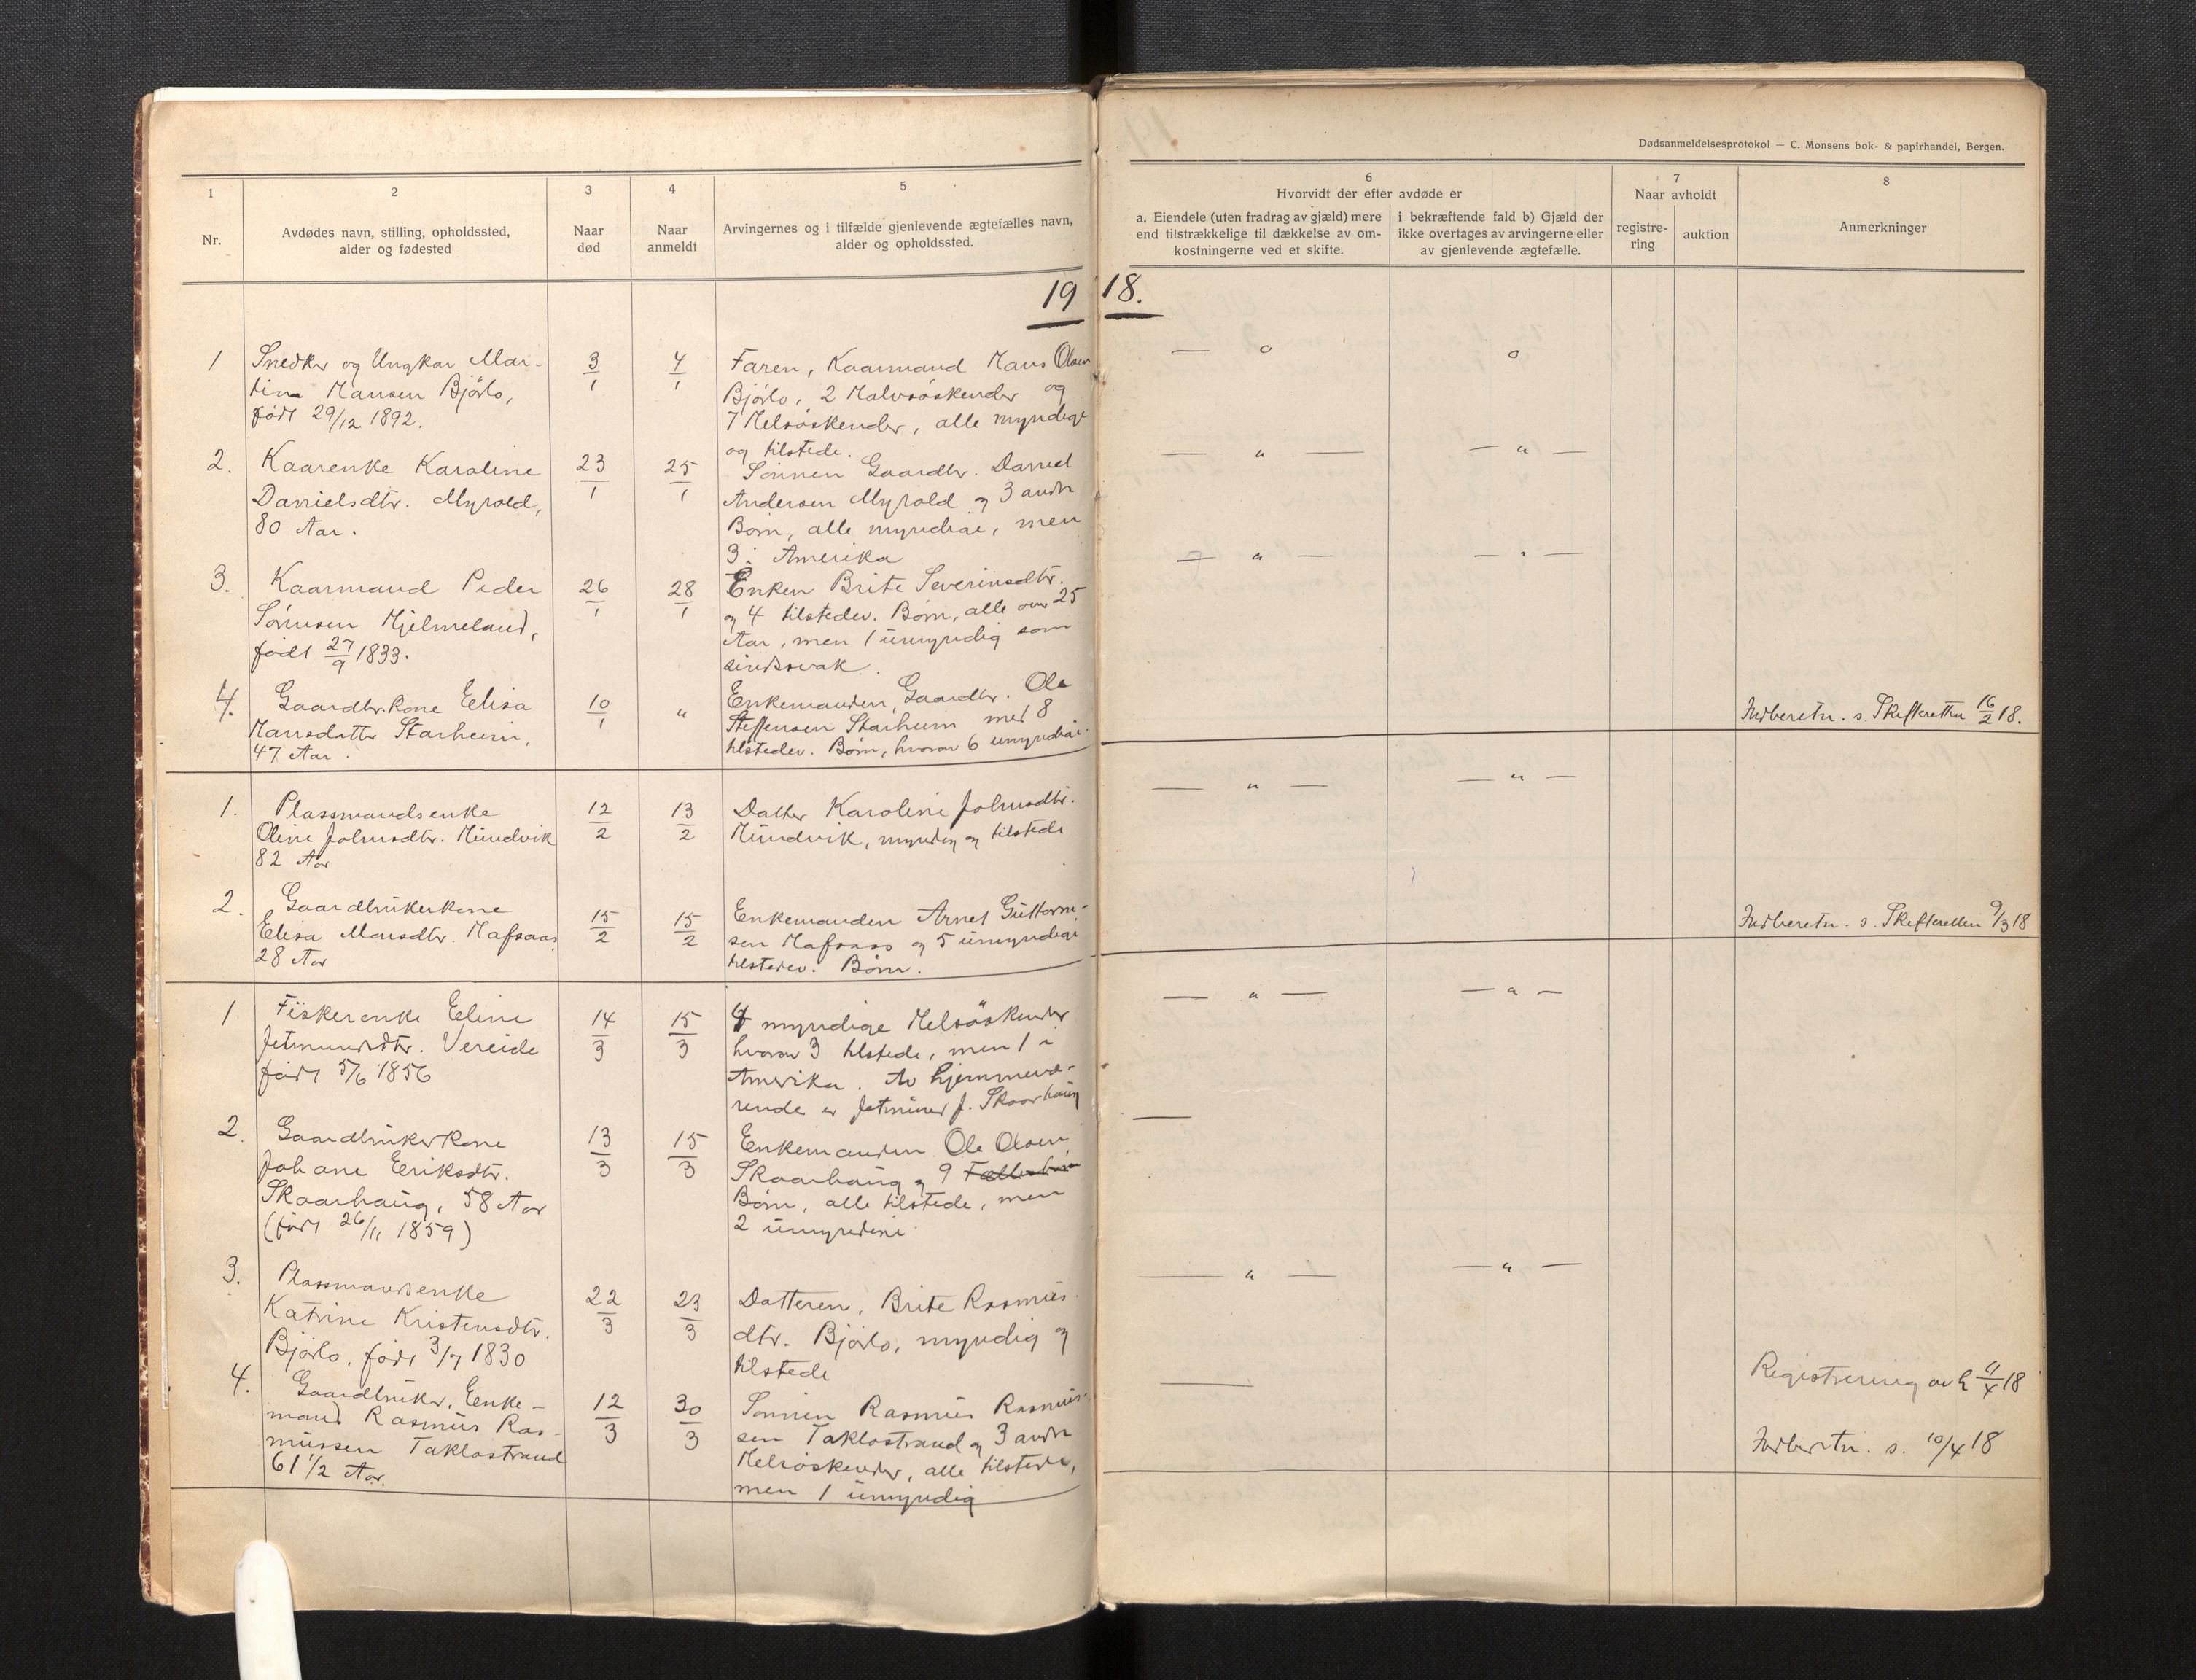 Dødsanmeldelsesprotokol — C. Monsens bok- & papirhandel, Bergen.
1
Nr.
2
Avdødes navn, stilling, opholdssted,
alder og fødested
3
Naar
død
4
Naar
anmeldt
5
Arvingernes og i tilfælde gjenlevende ægtefælles navn,
alder og opholdssted.
6
Hvorvidt der efter avdøde er
a. Eiendele (uten fradrag av gjæld) mere
end tilstrækkelige til dækkelse av om-
kostningerne ved et skifte.
i bekræftende fald b) Gjæld der
ikke overtages av arvingerne eller
av gjenlevende ægtefælle.
7
Naar avholdt
registre-
ring
auktion
8
Anmerkninger
1918.
1
Snedker og Ungkar Mar-
tin Hansen Bjørlo,
født 29/12 1892.
3/1
4/1
Faren, Kaarmand Hans Olsen
Bjørlo, 2 Halvsøskender og
7 Helsøskender, alle myndige
og tilstede.
— o
o
2.
Kaarenke Karoline
Danielsdtr. Myrold,
80 Aar.
23/1
25/1
Sønnen Gaardbr. Daniel
Andersen Myrold og 3 andre
Børn, alle myndige, men
3 i Amerika
— " —
— " —
3.
Kaarmand Peder
Sørensen Hjelmeland,
født 27/9 1833.
26/1
28/1
Enken Brite Severinsdtr.
og 4 tilstedev. Børn, alle over 25
Aar, men 1 umyndig som
sindssvak.
— " —
— " —
4.
Gaardbr.kone Elisa
Hansdatter Starheim,
47 Aar.
10/1
"
Enkemanden, Gaardbr. Ole
Steffensen Starheim med 8
tilstedev. Børn, hvorav 6 umyndige.
Indberetn. s. Skifteretten 16/2 18.
1.
Plassmandsenke
Oline Johnsdtr. Hundvik
82 Aar
12/2
13/2
Datter Karoline Johnsdtr.
Hundvik, myndig og tilstede
— " —
— " —
2.
Gaardbrukerkone
Elisa Monsdtr. Hafsaas
28 Aar
15/2
15/2
Enkemanden Arnet Guttorm-
sen Hafsaas og 5 umyndige
tilstedev. Børn.
Indberetn. s. Skifteretten 9/3 18
1
Fiskerenke Eline
Jetmundsdtr. Vereide
født 5/6 1856
14/3
15/3
4 myndige Helsøskender
hvorav 3 tilstede, men 1 i
Amerika. Av hjemmevæ-
rende er Jetmund J. Skaarhaug
— " —
— " —
2.
Gaardbrukerkone
Johane Eriksdtr.
Skaarhaug, 58 Aar
(født 26/11 1859)
13/3
15/3
Enkemanden Ole Olsen
Skaarhaug og 9
Børn, alle tilstede, men
2 umyndige.
—
3.
Plassmandsenke
Katrine Kristensdtr.
Bjørlo, født 3/7 1830
22/3
23/3
Datteren, Brite Rasmus-
dtr. Bjørlo, myndig og
tilstede
— " —
— " —
4.
Gaardbruker, Enke-
mand Rasmus Ras-
mussen Taklostrand
61 1/2 Aar.
12/3
30/3
Sønnen Rasmus Rasmus-
sen Taklostrand og 3 andre
Helsøskender, alle tilstede,
men 1 umyndig
—
Registrering avh 4/4 18
Indberetn. s. 10/4 18